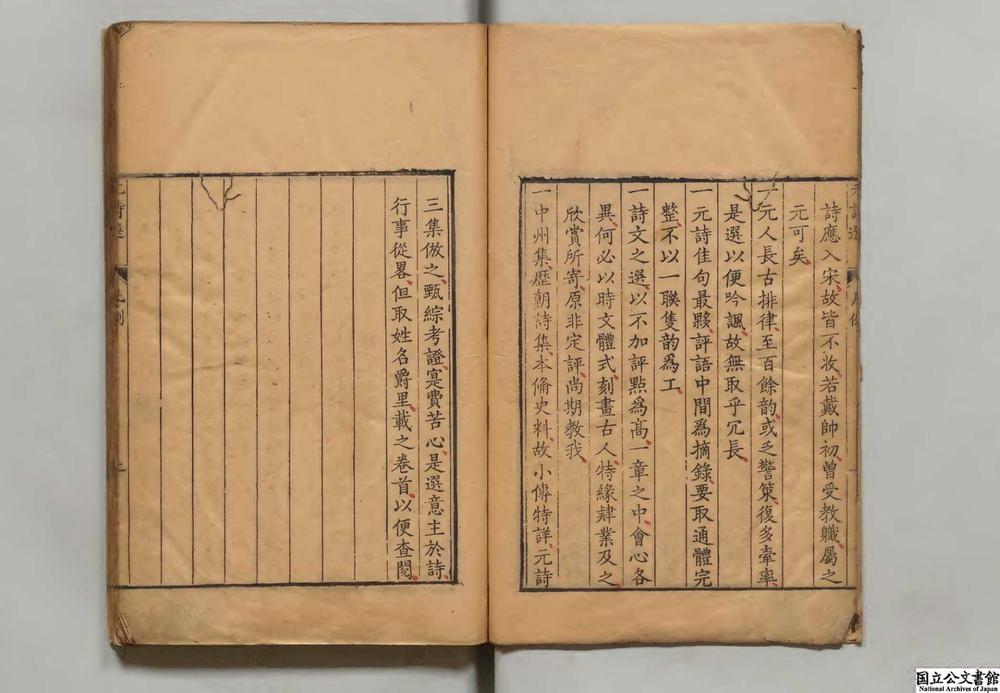 詩應入宋故皆不收若戴帥初曾受教職屬之
元可矣
一元人長古排律至百餘韵或乏警策復多牽率
是選以便吟諷故無取乎冗長
一元詩佳句最夥評語中間為摘錄要取通體完
整不以一聯隻韵為工
一詩文之選以不加評點為高一章之中會心各
異何必以時文體式刻畫古人特緣肄業及之
欣賞所寄原非定評尚期教我
一中州集歷朝詩集本備史料故小傳特詳元詩
三集倣之甄綜考證寔費苦心是選意主於詩
行事從畧但取姓名爵里載之卷首以便查閱
国立公文書館
National Archives of Japan